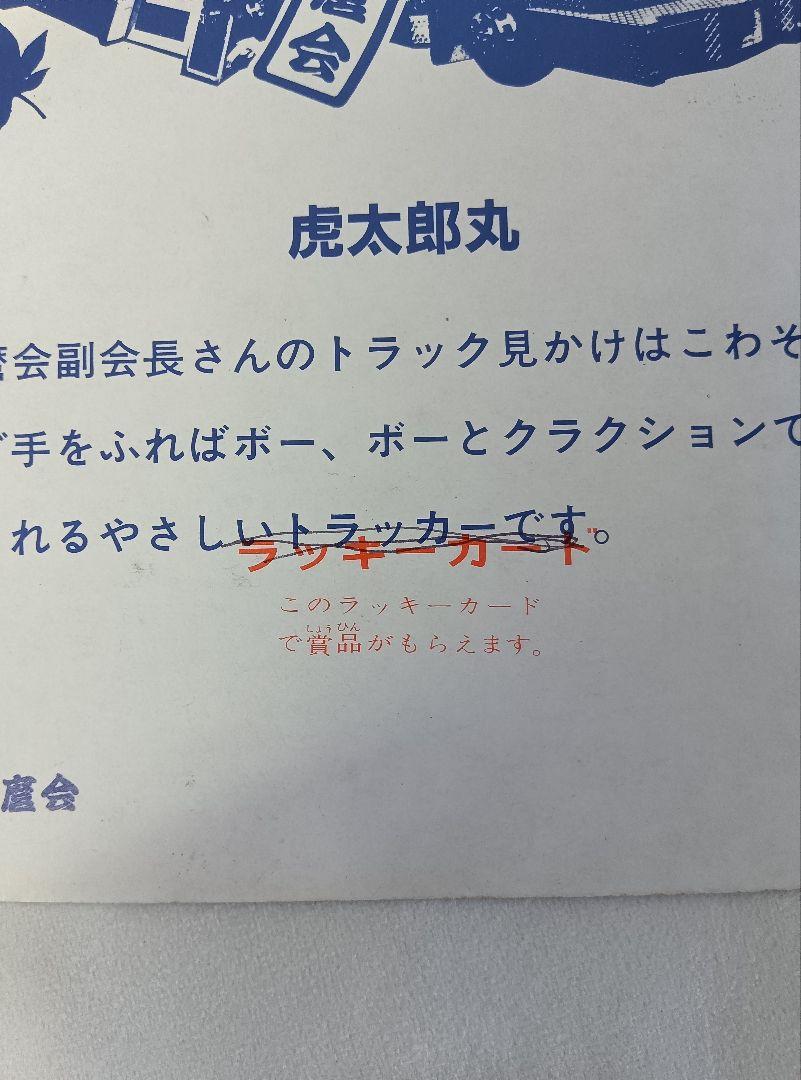 会
虎太郎丸
会副会長さんのトラック見かけはこわそ
手をふればボー、ボーとクラクションで
れるやさしいトラッカーです。
ラッキーカード
このラッキーカード
しょうひん
で賞品がもらえます。
麿会